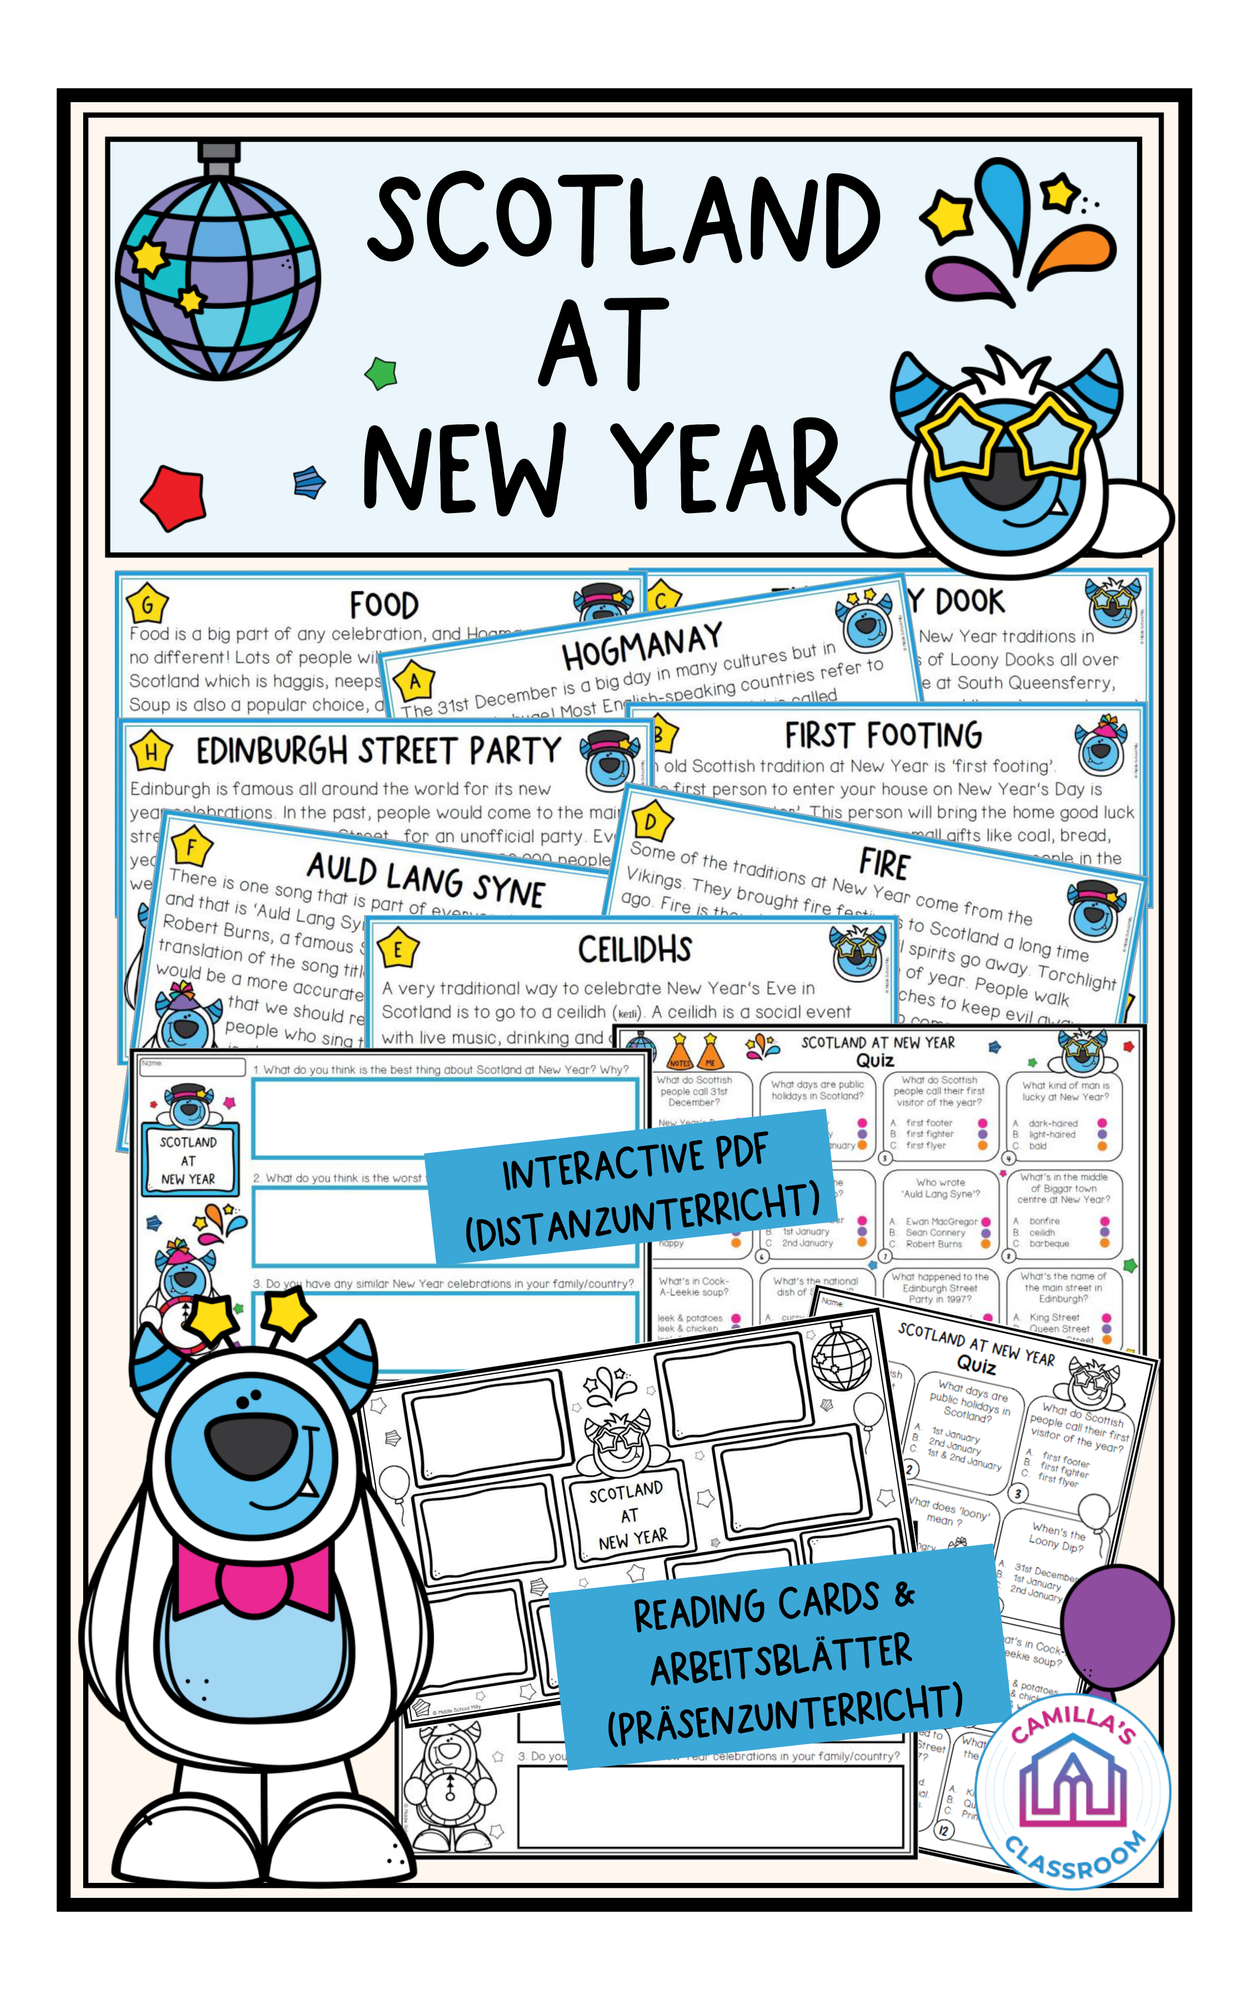 SCOTLAND
AT
NEW YEAR
G
FOOD
Food is a big part of any celebration, and
no different! Lots of people
Scotland which is haggis, neeps
Soup is also a popular choice,
C
Y DOOK
New Year traditions in
s of Loony Dooks all over
e at South Queensferry,
A
HOGMANAY
The 31st December is a big day in many cultures but in
Most English-speaking countries refer to
called
H
EDINBURGH STREET PARTY
Edinburgh is famous all around the world for its new
year celebrations. In the past, people would come to the main
Street, for an unofficial party.
people
B
FIRST FOOTING
old Scottish tradition at New Year is 'first footing'.
first person to enter your house on New Year's Day is
This person will bring the home good luck
small gifts like coal, bread,
in the
F
AULD LANG SYNE
There is one song that is part of
and that is 'Auld Lang
Robert Burns, a famous
translation of the song
would be a more accurate
that we should
people who sing
D
FIRE
Some of the traditions at New Year come from the
Vikings. They brought fire festivals to Scotland a long time
ago. Fire is
spirits go away. Torchlight
of year. People walk
to keep evil
E
CEILIDHS
A very traditional way to celebrate New Year's Eve in
Scotland is to go to a ceilidh (keɪli). A ceilidh is a social event
with live music, drinking and
Name:
1. What do you think is the best thing about Scotland at New Year? Why?
SCOTLAND
AT
NEW YEAR
2. What do you think is the worst
3. Do you have any similar New Year celebrations in your family/country?
NOTES
ME
SCOTLAND AT NEW YEAR
Quiz
What do Scottish
people call 31st
December?
What days are public
holidays in Scotland?
What do Scottish
people call their first
visitor of the year?
A. first footer
B. first fighter
C. first flyer
3
What kind of man is
lucky at New Year?
A. dark-haired
B. light-haired
C. bald
4
B. 1st January
C. 2nd January
6
happy
Who wrote
'Auld Lang Syne'?
A. Ewan MacGregor
B. Sean Connery
C. Robert Burns
7
What's in the middle
of Biggar town
centre at New Year?
A. bonfire
B. ceilidh
C. barbeque
8
What's in Cock-
A-Leekie soup?
leek & potatoes
leek & chicken
What's the national
dish of
A. curry
What happened to the
Edinburgh Street
Party in 1997?
What's the name of
the main street in
Edinburgh?
A. King Street
Queen Street
INTERACTIVE PDF
(DISTANZUNTERRICHT)
SCOTLAND
AT
NEW YEAR
© Middle School Milly
Name:
SCOTLAND AT NEW YEAR
Quiz
What days are
public holidays in
Scotland?
A. 1st January
B. 2nd January
C. 1st & 2nd January
2
What do Scottish
people call their first
visitor of the year?
A. first footer
B. first fighter
C. first flyer
3
What does 'loony'
mean ?
When's the
Loony Dip?
A. 31st December
B. 1st January
C. 2nd January
in Cock-
soup?
& potatoes
12
READING CARDS &
ARBEITSBLÄTTER
(PRÄSENZUNTERRICHT)
3. Do you
celebrations in your family/country?
CAMILLA'S
CLASSROOM